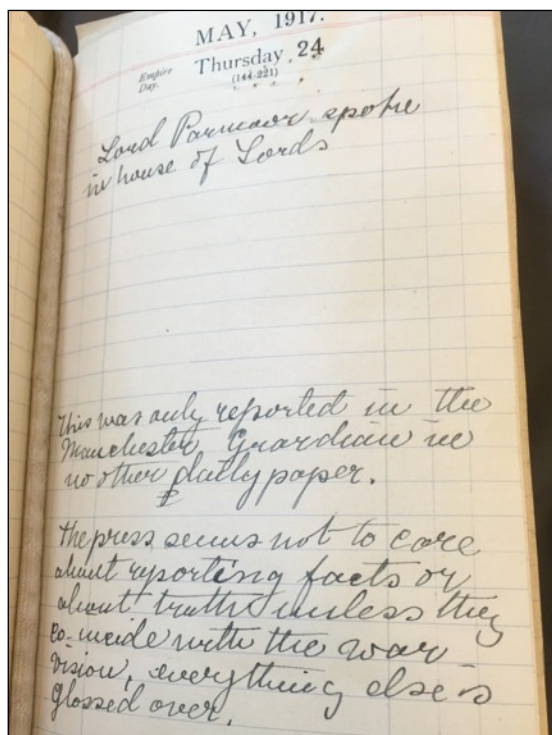 MAY, 1917.
Empire
Day.
Thursday 24
(144-221)
Lord Parmoor spoke
in house of Lords
This was only reported in the
Manchester Guardian in
no other daily paper.
the press seems not to care
about reporting facts or
about truth unless they
co-incide with the war
vision, everything else is
glossed over.